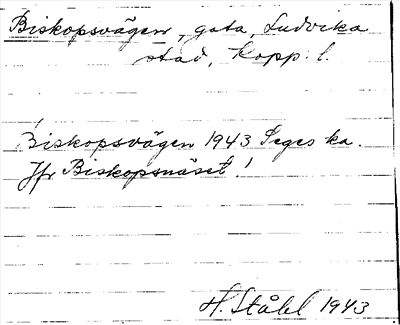 Biskopsvägen, gata, Ludvika
stad, Kopp. l.
Biskopsvägen 1943 Seges ka.
Jfr Biskopsnäset!
H. Ståhl 1943